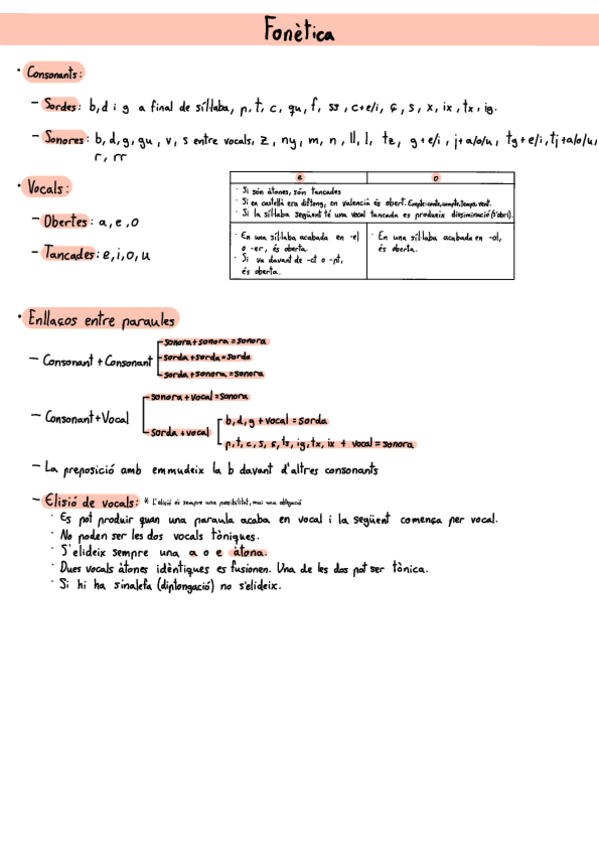 Fonètica
· Consonants:
– Sordes: b, d i g a final de síl·laba, p, t, c, qu, f, ss, c+e/i, ç, s, x, ix, tx, ig.
– Sonores: b, d, g, gu, v, s entre vocals, z, ny, m, n, ll, l, tz, g+e/i, j+a/o/u, tg+e/i, tj+a/o/u,
r, rr
· Vocals:
– Obertes: a, e, o
– Tancades: e, i, o, u
e o
· Si són àtones, són tancades
· Si en castellà era diftong, en valencià és obert.
· Si la síl·laba següent té una vocal tancada es produeix dissimilació (s'obri).
· En una síl·laba acabada en -el
o -er, és oberta.
· Si va davant de -ct o -pt,
és oberta.
· En una síl·laba acabada en -ol,
és oberta.
· Enllaços entre paraules
– Consonant + Consonant
sonora + sonora = sonora
sorda + sorda = sorda
sorda + sonora = sonora
– Consonant + Vocal
sonora + vocal = sonora
sorda + vocal
b, d, g + vocal = sorda
p, t, c, s, ts, ig, tx, ix + vocal = sonora
– La preposició amb emmudeix la b davant d'altres consonants
– Elisió de vocals: * L'elisió és sempre una possibilitat, mai una obligació
· Es pot produir quan una paraula acaba en vocal i la següent comença per vocal.
· No poden ser les dos vocals tòniques.
· S'elideix sempre una a o e àtona.
· Dues vocals àtones idèntiques es fusionen. Una de les dos pot ser tònica.
· Si hi ha sinalefa (diptongació) no s'elideix.